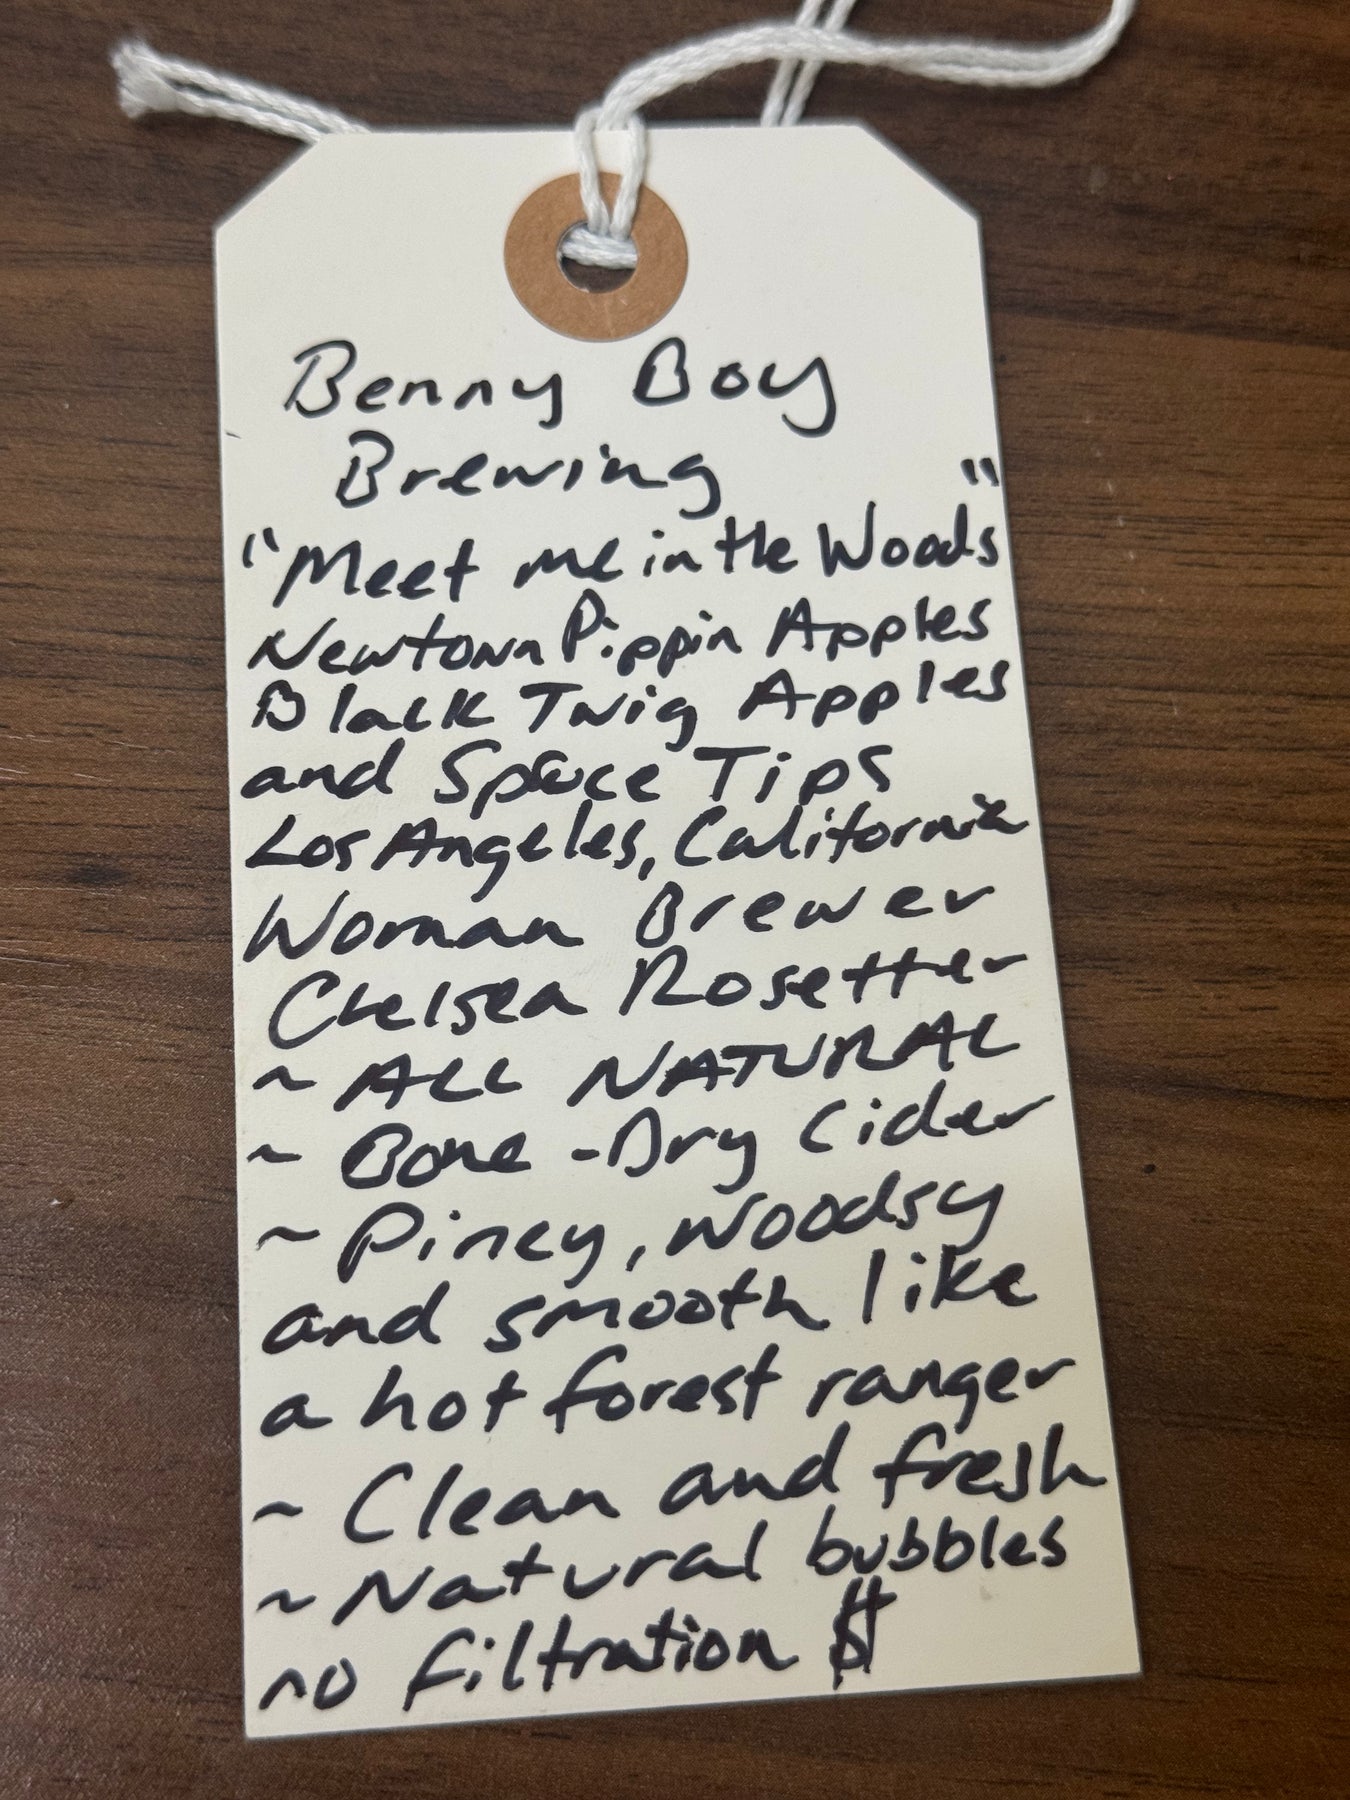 Benny Boy
Brewing
"Meet me in the Woods"
Newtown Pippin Apples
Black Twig Apples
and Spruce Tips
Los Angeles, California
Woman Brewer
Chelsea Rosetter
~ ALL NATURAL
~ Bone-Dry Cider
~ Piney, Woodsy
and smooth like
a hot forest ranger
~ Clean and fresh
~ Natural bubbles
no filtration $